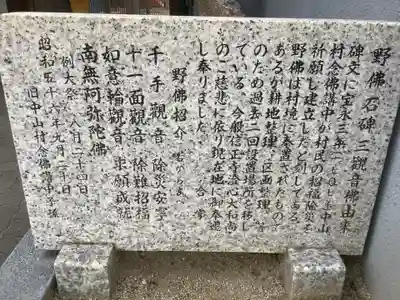 野佛石碑三観音佛由来
碑文に宝永三年(一七〇六)上中山
村念佛講中が村民の招福除災を
祈願し建立したと刻してある
野佛は村境に奉置されたもので
あるが耕地整理、区画整理
のため過去二回設置場所を移し
ている 今般信正寺 心大和尚
のご慈悲に依り現在地に御奉遷
し奉りました 合掌
野佛招介
千手観音 除災安寧
十一面観音 除難招福
如意輪観音 求願成就
南無阿弥陀佛
例大祭 八月二十四日
昭和五十六年九月二十日
旧中山村念佛講中